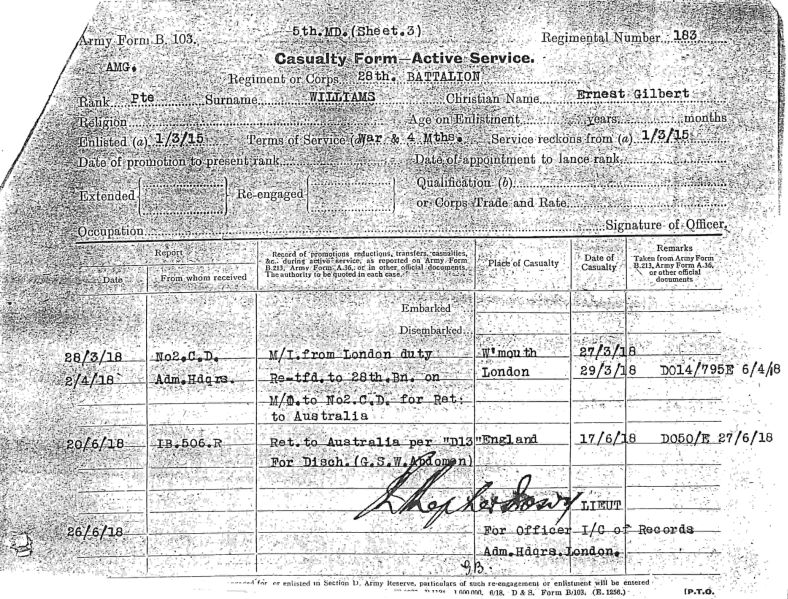 Army Form B. 103.
5th.MD.(Sheet.3)
Regimental Number 183
AMG.
Casualty Form—Active Service.
Regiment or Corps. 28th. BATTALION
Rank Pte Surname WILLIAMS Christian Name Ernest Gilbert
Religion Age on Enlistment years months
Enlisted (a) 1/3/15 Terms of Service (a) War & 4 Mths. Service reckons from (a) 1/3/15
Date of promotion to present rank Date of appointment to lance rank
Extended Re-engaged Qualification (b)
or Corps Trade and Rate
Occupation Signature of Officer.
Report
Date From whom received
Record of promotions reductions, transfers, casualties,
&c., during active service, as reported on Army Form
B.213, Army Form A.36, or in other official documents.
The authority to be quoted in each case.
Place of Casualty
Date of
Casualty
Remarks
Taken from Army Form
B.213, Army Form A.36,
or other official
documents
Embarked
Disembarked
28/3/18 No2.C.D. M/I.from London duty W'mouth 27/3/18
2/4/18 Adm.Hdqrs. Re-tfd. to 28th.Bn. on London 29/3/18 DO14/795E 6/4/18
M/O.to No2.C.D. for Ret:
to Australia
20/6/18 IB.506.R Ret.to Australia per "D13" England 17/6/18 DO50/E 27/6/18
For Disch.(G.S.W.Abdomen)
LIEUT
26/6/18 For Officer I/C of Records
Adm.Hdqrs.London.
for or enlisted in Section D, Army Reserve, particulars of such re-engagement or enlistment will be entered
1,000,000. 6/18. D & S. Form B/103. (E. 1256.) [P.T.O.